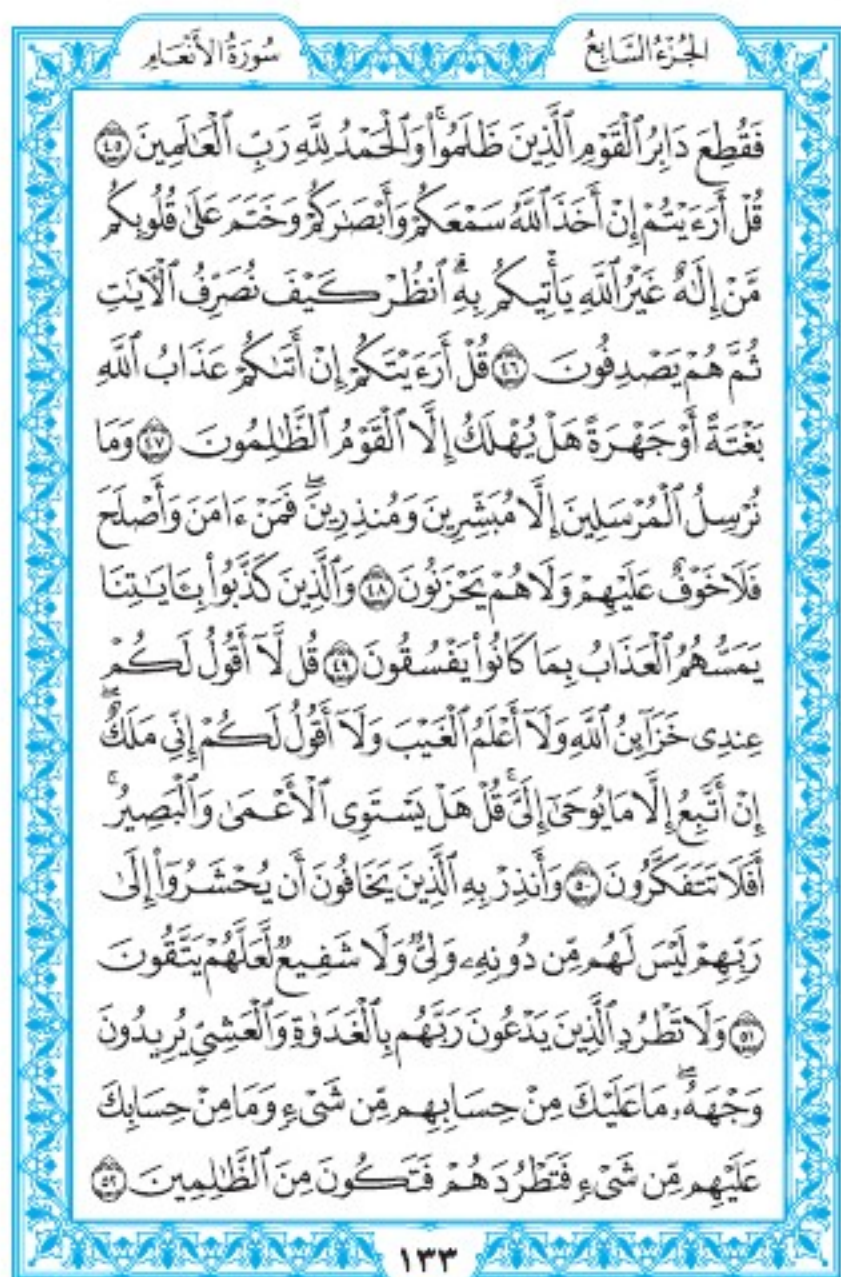 الجُزْءُ السَّابِعُ سُورَةُ الأَنْعَامِ
فَقُطِعَ دَابِرُ ٱلْقَوْمِ ٱلَّذِينَ ظَلَمُوا۟ۚ وَٱلْحَمْدُ لِلَّهِ رَبِّ ٱلْعَـٰلَمِينَ ٤٥
قُلْ أَرَءَيْتُمْ إِنْ أَخَذَ ٱللَّهُ سَمْعَكُمْ وَأَبْصَـٰرَكُمْ وَخَتَمَ عَلَىٰ قُلُوبِكُم
مَّنْ إِلَـٰهٌ غَيْرُ ٱللَّهِ يَأْتِيكُم بِهِۗ ٱنظُرْ كَيْفَ نُصَرِّفُ ٱلْـَٔايَـٰتِ
ثُمَّ هُمْ يَصْدِفُونَ ٤٦ قُلْ أَرَءَيْتَكُمْ إِنْ أَتَىٰكُمْ عَذَابُ ٱللَّهِ
بَغْتَةً أَوْ جَهْرَةً هَلْ يُهْلَكُ إِلَّا ٱلْقَوْمُ ٱلظَّـٰلِمُونَ ٤٧ وَمَا
نُرْسِلُ ٱلْمُرْسَلِينَ إِلَّا مُبَشِّرِينَ وَمُنذِرِينَۖ فَمَنْ ءَامَنَ وَأَصْلَحَ
فَلَا خَوْفٌ عَلَيْهِمْ وَلَا هُمْ يَحْزَنُونَ ٤٨ وَٱلَّذِينَ كَذَّبُوا۟ بِـَٔايَـٰتِنَا
يَمَسُّهُمُ ٱلْعَذَابُ بِمَا كَانُوا۟ يَفْسُقُونَ ٤٩ قُل لَّآ أَقُولُ لَكُمْ
عِندِى خَزَآئِنُ ٱللَّهِ وَلَآ أَعْلَمُ ٱلْغَيْبَ وَلَآ أَقُولُ لَكُمْ إِنِّى مَلَكٌۖ
إِنْ أَتَّبِعُ إِلَّا مَا يُوحَىٰٓ إِلَىَّۚ قُلْ هَلْ يَسْتَوِى ٱلْأَعْمَىٰ وَٱلْبَصِيرُۚ
أَفَلَا تَتَفَكَّرُونَ ٥٠ وَأَنذِرْ بِهِ ٱلَّذِينَ يَخَافُونَ أَن يُحْشَرُوٓا۟ إِلَىٰ
رَبِّهِمْ لَيْسَ لَهُم مِّن دُونِهِۦ وَلِىٌّ وَلَا شَفِيعٌ لَّعَلَّهُمْ يَتَّقُونَ
٥١ وَلَا تَطْرُدِ ٱلَّذِينَ يَدْعُونَ رَبَّهُم بِٱلْغَدَوٰةِ وَٱلْعَشِىِّ يُرِيدُونَ
وَجْهَهُۥۖ مَا عَلَيْكَ مِنْ حِسَابِهِم مِّن شَىْءٍ وَمَا مِنْ حِسَابِكَ
عَلَيْهِم مِّن شَىْءٍ فَتَطْرُدَهُمْ فَتَكُونَ مِنَ ٱلظَّـٰلِمِينَ ٥٢
١٣٣